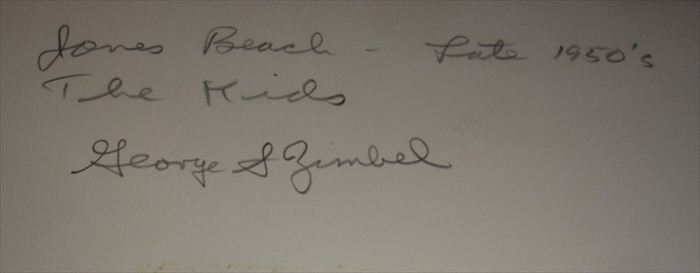 Jones Beach - Late 1950's
The Kids
George S Zimbel